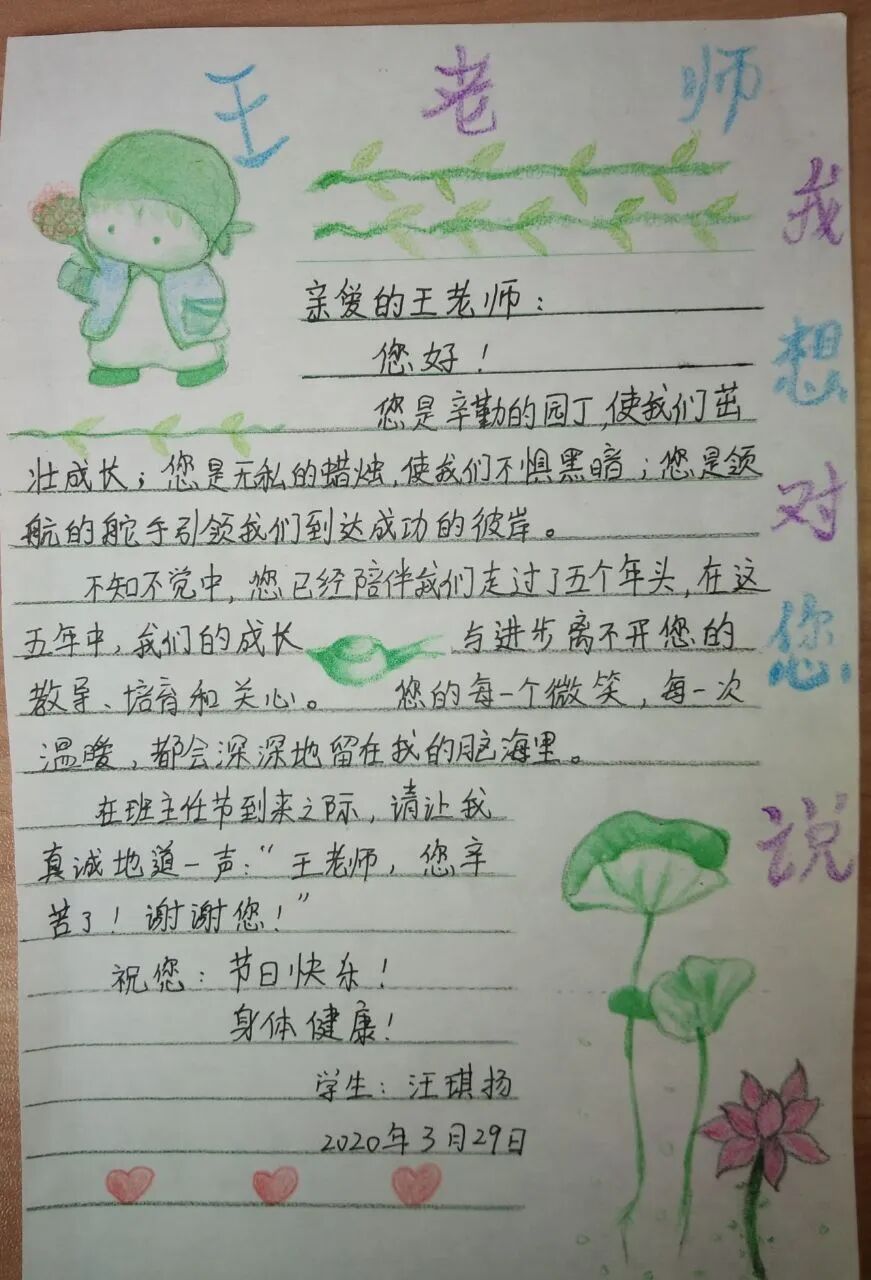 王老师
我想对您说
亲爱的王老师：
您好！
您是辛勤的园丁，使我们茁
壮成长；您是无私的蜡烛，使我们不惧黑暗；您是领
航的舵手引领我们到达成功的彼岸。
不知不觉中，您已经陪伴我们走过了五个年头，在这
五年中，我们的成长与进步离不开您的
教导、培育和关心。您的每一个微笑，每一次
温暖，都会深深地留在我的脑海里。
在班主任节到来之际，请让我
真诚地道一声：“王老师，您辛
苦了！谢谢您！”
祝您：节日快乐！
身体健康！
学生：汪琪扬
2020年3月29日